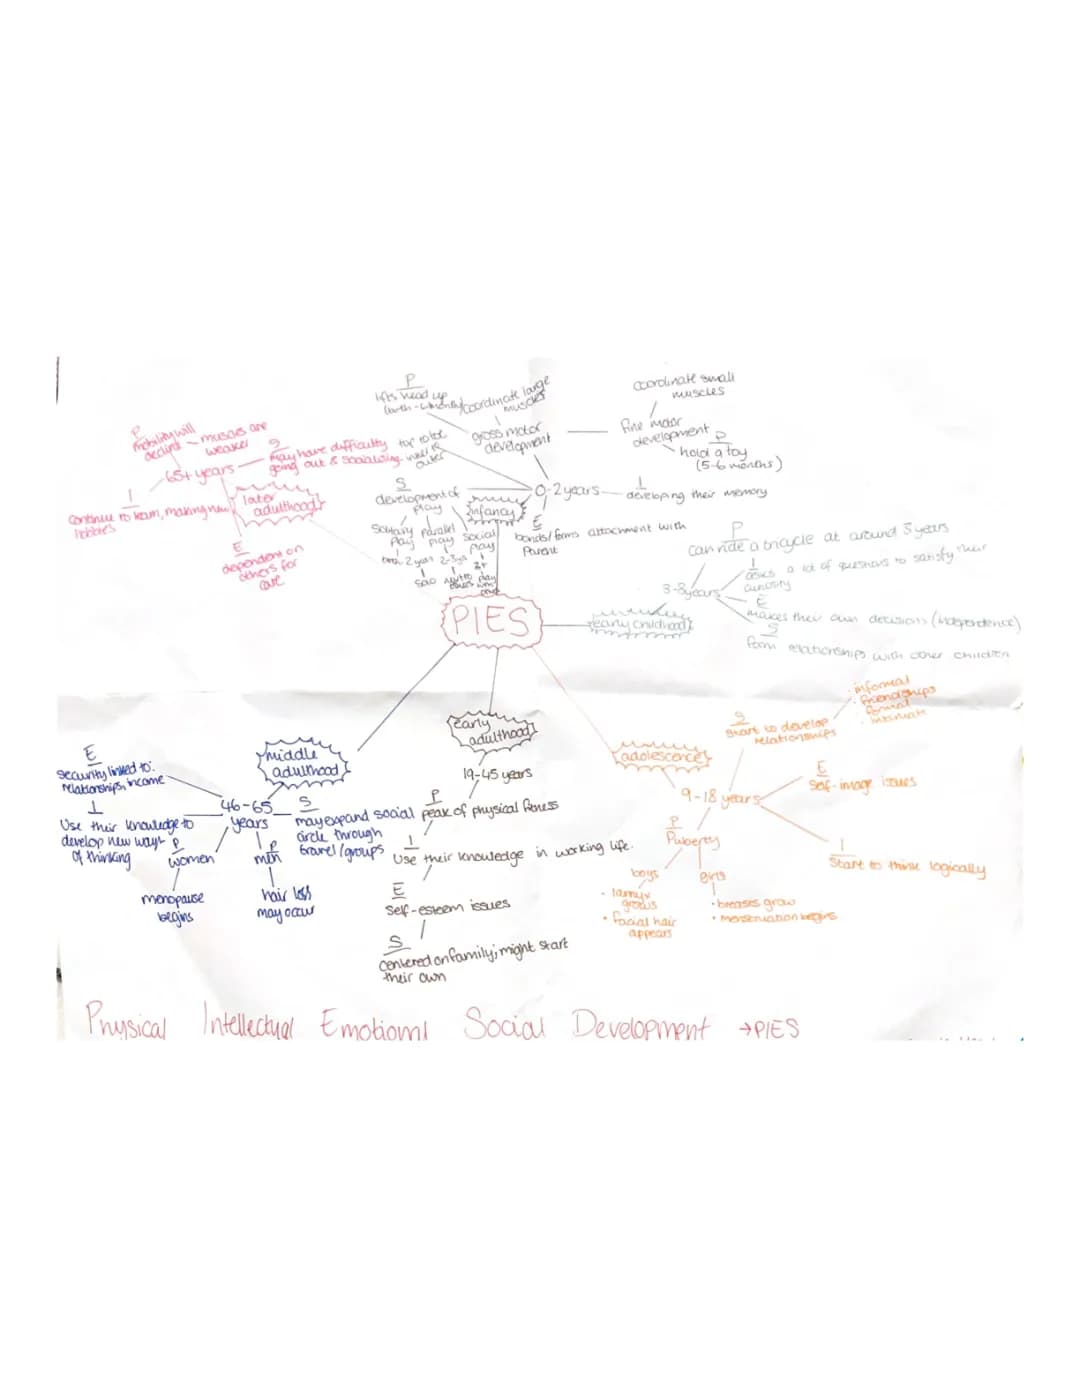 P
lifts head up
coordinate large
muscles
gross motor
development
coordinate small
muscles
fine motor
development
P
hold a toy
(5-6 months)
0-2 years
infancy
I
developing their memory
E
bonds/forms attachment with
Parent
S
development of
play
solitary
play
parallel
play
social
play
2-3
solo
top to toe
inner to
outer
P
mobility will
decline
muscles are
weaker
65+ years
S
may have difficulty
going out & socialising
I
Continue to learn, making new
hobbies
later
adulthood
E
dependent on
others for
care
PIES
early childhood
3-8 years
P
can ride a tricycle at around 3 years
I
asks a lot of questions to satisfy their
curiosity
E
makes their own decisions (independence)
S
form relationships with other children
adolescence
9-18 years
S
Start to develop
relationships
· informal
· friendships
· formal
· intimate
E
Self-image issues
I
Start to think logically
P
Puberty
boys
• larnyx
grows
• facial hair
appears
girls
• breasts grow
• menstruation begins
early
adulthood
19-45 years
P
peak of physical fitness
I
Use their knowledge in working life.
E
Self-esteem issues
S
centered on family; might start
their own
middle
adulthood
46-65
years
E
security linked to:
relationships, income
I
Use their knowledge to
develop new ways
of thinking
P
women
menopause
begins
P
men
hair loss
may occur
S
may expand social
circle through
travel/groups
Physical Intellectual Emotional Social Development → PIES